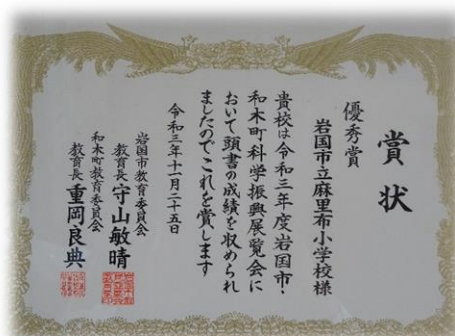 賞状
優秀賞
岩国市立麻里布小学校様
貴校は令和三年度岩国市・
和木町科学振興展覧会に
おいて頭書の成績を収められ
ましたのでこれを賞します
令和三年十一月二十五日
岩国市教育委員会
教育長 守山敏晴
和木町教育委員会
教育長 重岡良典